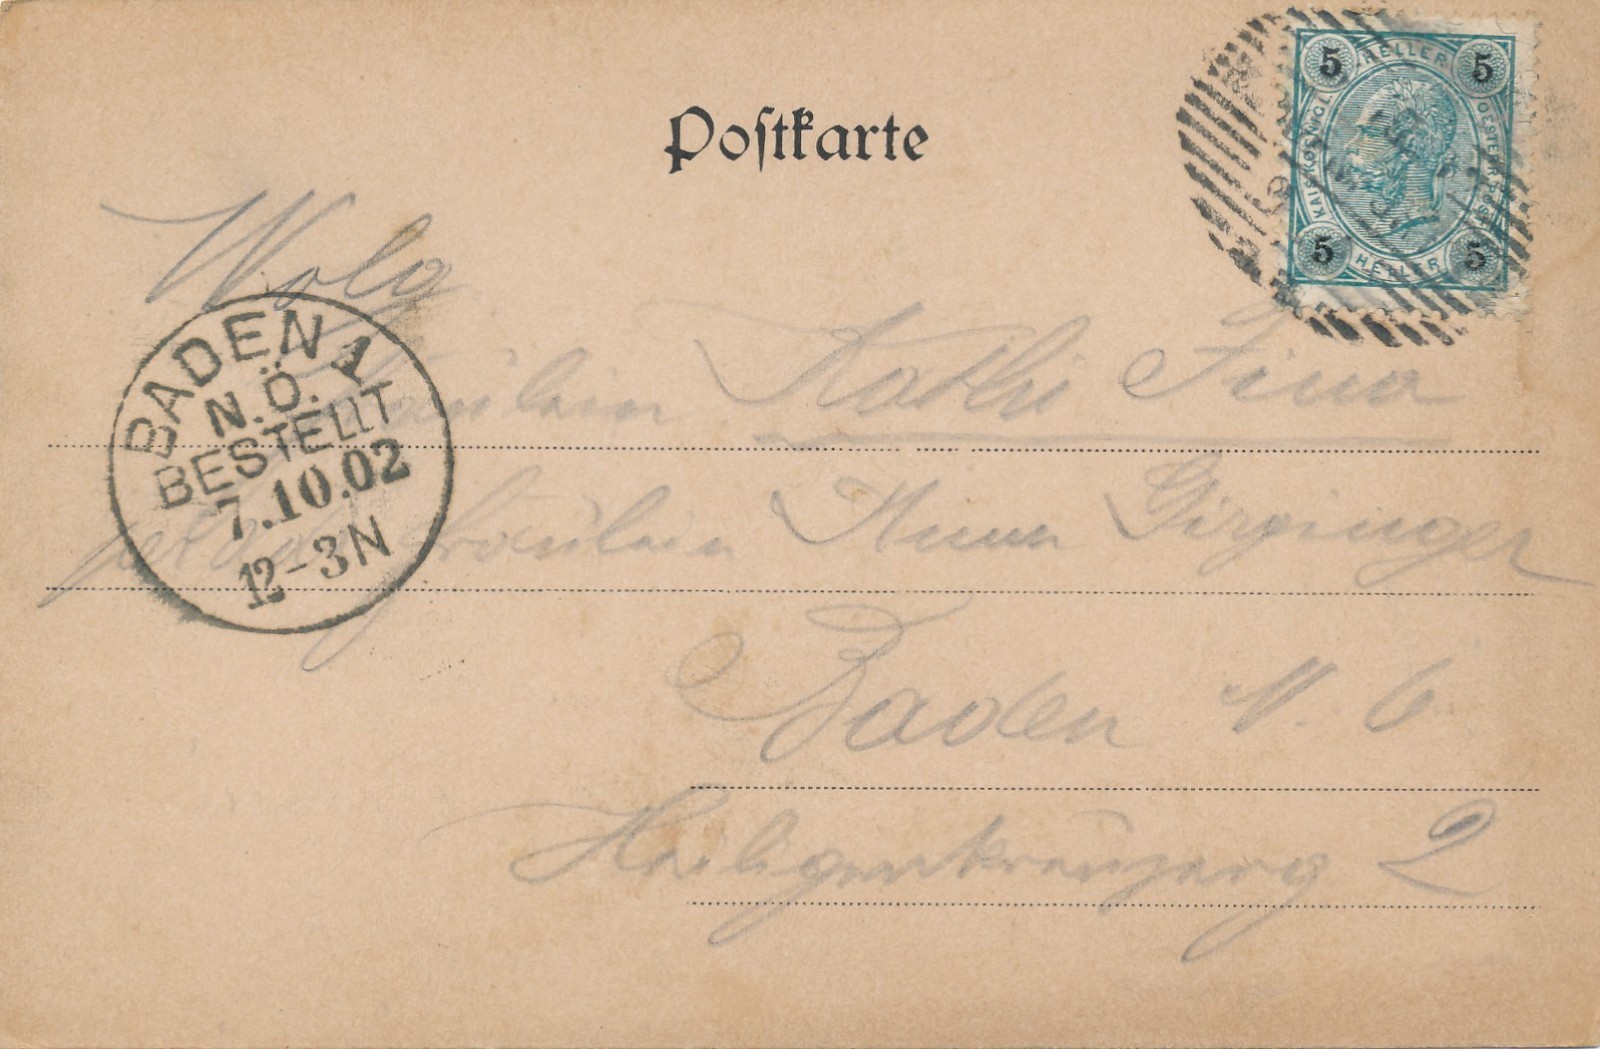 Postkarte
5 HELLER 5
KAIS. KOENIGL. OESTERR. POST
5 HELLER 5
Wolg
Fräulein Kathi Fina
BADEN 1
N.Ö.
BESTELLT
7.10.02
12-3N
Fräulein Anna Girzinger
Baden N. 6
Heiligenkreuzerg 2